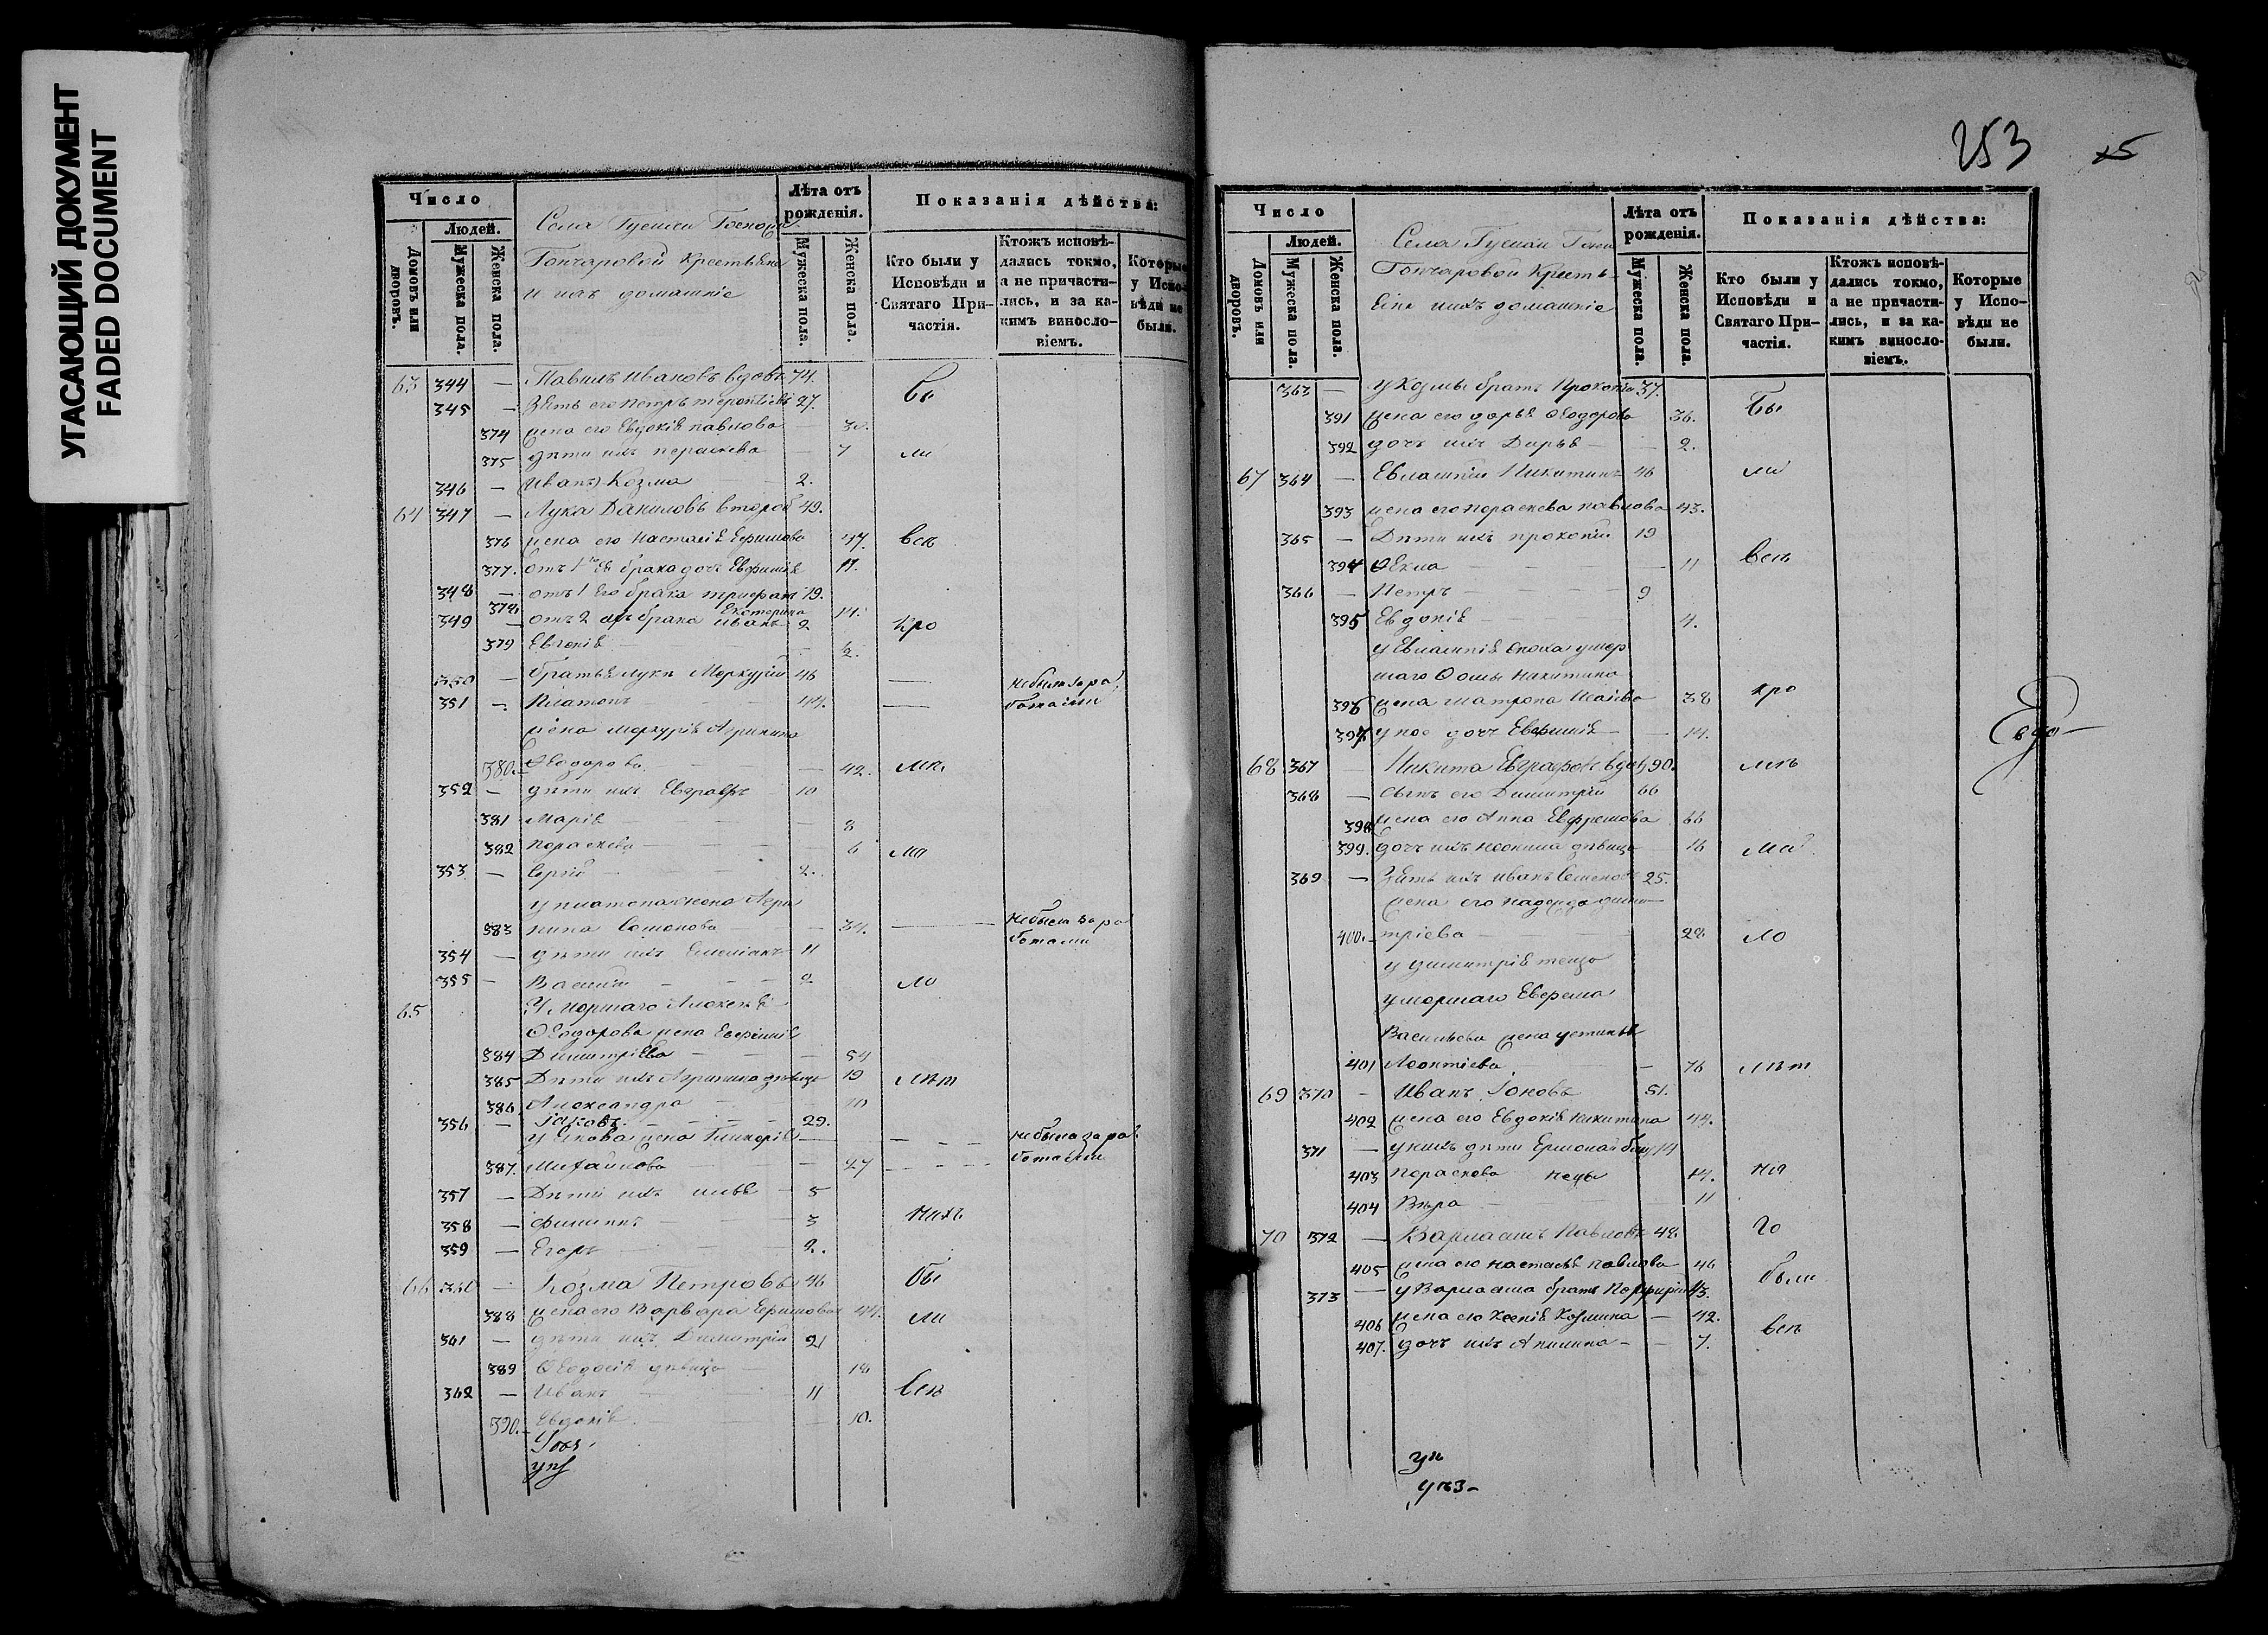 УГАСАЮЩИЙ ДОКУМЕНТ
FADED DOCUMENT
Число
Людей.
Домовъ или дворовъ.
Мужеска пола.
Женска пола.
Села Гусиси Госпожи
Гончаровой крестьяне
и ихъ домашніе
Лѣта отъ рожденія.
Мужеска пола.
Женска пола.
Показанія дѣйства:
Кто были у Исповѣди и Святаго Причастія.
Ктожъ исповѣдались токмо, а не причастились, и за какимъ винословіемъ.
Которые у Исповѣди не были.
63 344 — Павилъ Ивановъ вдовъ 74. бы
345 — Зять его Петръ Терентіевъ 27.
374 жена его Евдокія Павлова — 30.
375 дѣти ихъ Пораскева — 7 ли
346 — Иванъ Козма 2.
64 347 — Лука Даниловъ второб 49.
376 жена его Настасія Ефимова 47. всѣ
377. отъ 1го Ея брака дочь Евфимія 17.
348 — отъ 1 его брака Трифонъ 19.
378 Екатерина 14.
349 — отъ 2 ихъ брака Иванъ 9 кро
379 Евгенія — 2.
350 — братья Луки Меркурій 46 — не былъ за ра
351 — Платонъ 44. — ботами
жена Меркурія Агрипина
380. Ѳедорова — 42. мѣ
352 — дѣти ихъ Евграфъ 10
381 Марія — 8
382 Пораскева — 6 ма
353 — Сергій 2.
у Платона жена Агри
383 пина Семенова — 34. — не была за ра
354 — дѣти ихъ Емеліанъ 11 ботами
355 — Василій 2 ло
65 Умершаго Алексея
Ѳеодорова жена Евфимія
384 Димитріева — 54
385 Дѣти ихъ Агрипина дѣвица 19 лѣт
386 Александра 10
356 — Іаковъ. 29.
у Іакова жена Гликерія — не была за ра
387. Михайлова — 27 ботами
357 — Дѣти ихъ Илья 5
358 — Филиппъ 3 нихъ
359 — Егоръ 2.
66 360 — Козма Петровъ 46 бы
388 жена его Варвара Ефимова 44. ли
361 — дѣти ихъ Димитрій 21
389 Ѳеодосія дѣвица 18
362 — Иванъ 11 всѣ
390. Евдокія — 10.
253
Число
Людей.
Домовъ или дворовъ.
Мужеска пола.
Женска пола.
Села Гусиси Госп
Гончаровой Кресть-
яне ихъ домашніе
Лѣта отъ рожденія.
Мужеска пола.
Женска пола.
Показанія дѣйства:
Кто были у Исповѣди и Святаго Причастія.
Ктожъ исповѣдались токмо, а не причастились, и за какимъ винословіемъ.
Которые у Исповѣди не были.
363 — у Козмы братъ Прокопій 37.
391 жена его Дарья Ѳеодорова 36. Бы
392 дочь ихъ Дарья — 2.
67 364 — Евлампій Никитинъ 46 ли
393 жена его Пораскева Павлова 43.
365 — Дѣти ихъ Прокопій 19
394 Ѳекла — 11 всѣ
366 — Петръ 9
395 Евдокія 4.
у Евлампія сноха умер
шаго Ѳомы Никитина
396 жена Матрона Исаіева 38 кро
397. у нее дочь Евфимія — 14.
68 367 — Никита Евграфовъ вдов 90. мѣ
368 — сынъ его Димитрій 66
398 жена его Анна Евфремова 66
399. дочь ихъ Неонила дѣвица 18 ма
369 — Зять ихъ Иванъ Семеновъ 25.
жена его Надежда дими-
400. тріева — 28 ло
у Димитрія теща
умершаго Ефрема
Васильева жена Устинья
401 Леонтіева — 76 лѣт
69 370 — Иванъ Іоновъ 51.
402 жена его Евдокія Никитина 44.
371 — у нихъ дѣти Ермолай 14
403 Пораскева 14. нія
404 Вѣра 11
70 372 — Варлаамъ Павловъ 48. го
405 жена его Настасья Павлова 46
373 — у Варлаама братъ Порфирій 43. были
406 жена его Ксенія Козмина — 42.
407. дочь ихъ Акилина — 7. всѣ